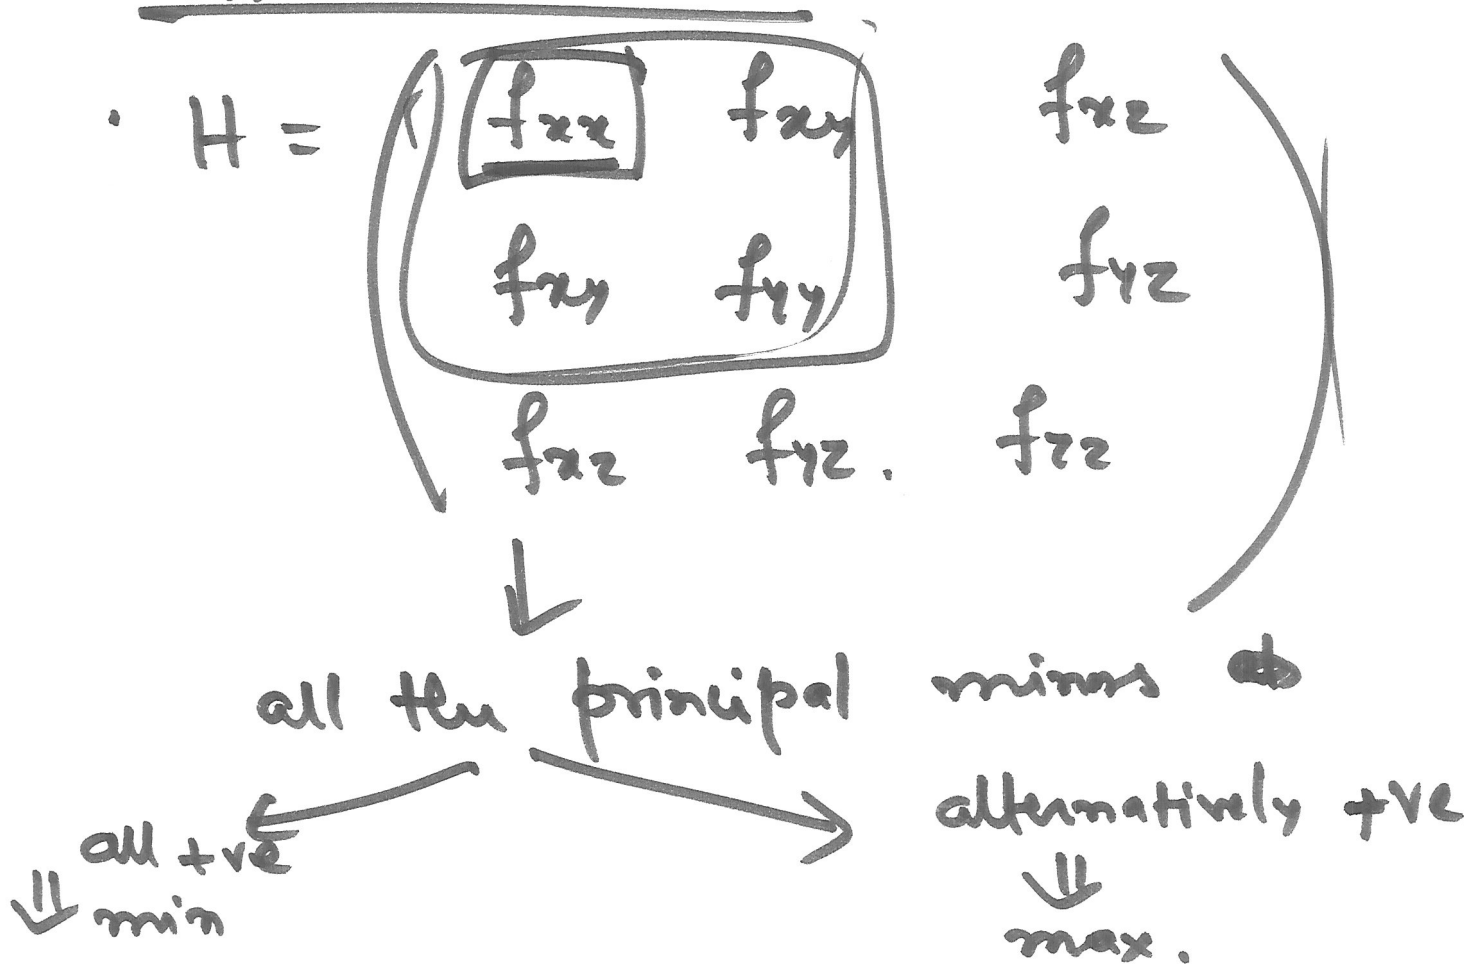 · H = ( fxx fxy fxz
fxy fyy fyz
fxz fyz. fzz )
all the principal minors
all +ve
alternatively +ve
⇓ min
⇓
max.